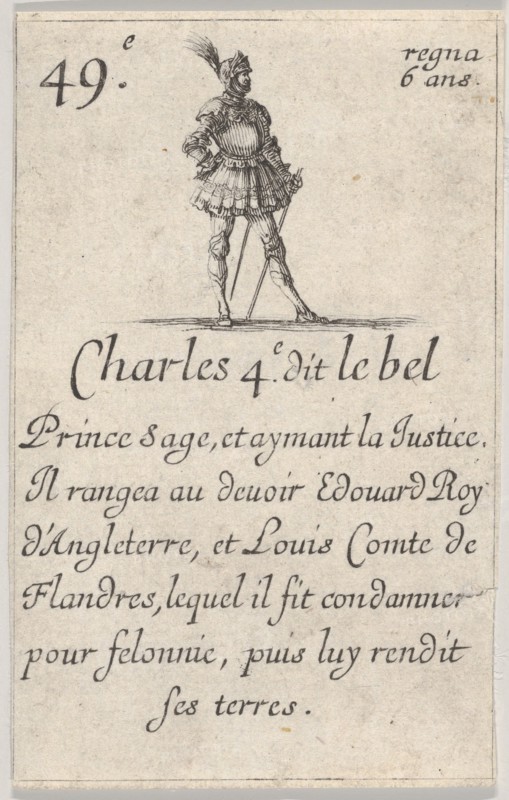 49.e
regna
6 ans.
Charles 4.e dit le bel
Prince sage, et aymant la Justice.
Il rangea au devoir Edouard Roy
d'Angleterre, et Louis Comte de
Flandres, lequel il fit condamner
pour felonnie, puis luy rendit
ses terres.